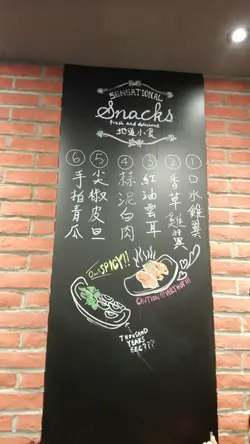 SENSATIONAL
Snacks
fresh and delicious
地道小食
①口水雞翼
②香草雞翼
③紅油雲耳
④蒜泥白肉
⑤尖椒皮旦
⑥手拍青瓜
Ouu SPICY!!
CAUTION!!! VERY HOT!!!
THOUSAND
YEARS
EGG???